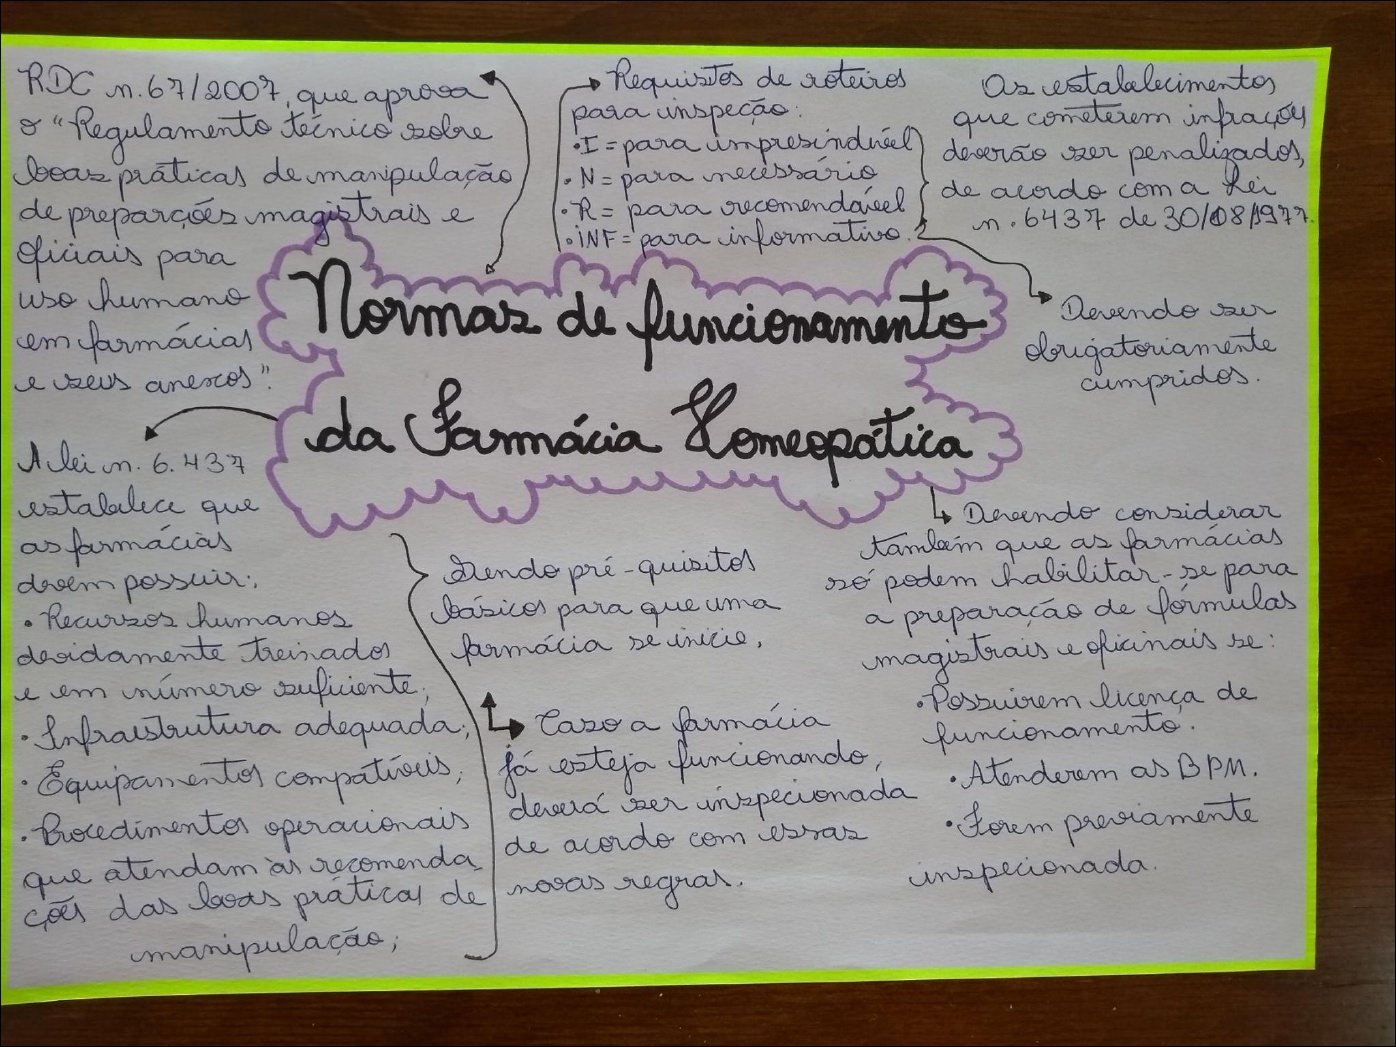 RDC n.67/2007, que aprova
o "Regulamento técnico sobre
boas práticas de manipulação
de preparções magistrais e
oficiais para
uso humano
em farmácias
e seus anexos".
Requisitos de roteiros
para inspeção:
• I = para imprescindível
• N = para necessário
• R = para recomendável
• INF = para informativo.
Os estabelecimentos
que cometerem infrações
deverão ser penalizados,
de acordo com a Lei
n. 6437 de 30/08/1977.
Devendo ser
obrigatoriamente
cumpridos.
Normas de funcionamento
da Farmácia Homeopática
A lei n. 6.437
estabelece que
as farmácias
devem possuir:
• Recursos humanos
devidamente treinados
e em número suficiente;
• Infraestrutura adequada;
• Equipamentos compatíveis;
• Procedimentos operacionais
que atendam às recomenda
ções das boas práticas de
manipulação;
Sendo pré-quisitos
básicos para que uma
farmácia se inicie,
Caso a farmácia
já esteja funcionando,
deverá ser inspecionada
de acordo com essas
novas regras.
Devendo considerar
também que as farmácias
só podem habilitar-se para
a preparação de fórmulas
magistrais e oficinais se:
• Possuirem licença de
funcionamento.
• Atenderem as BPM.
• Forem previamente
inspecionada.